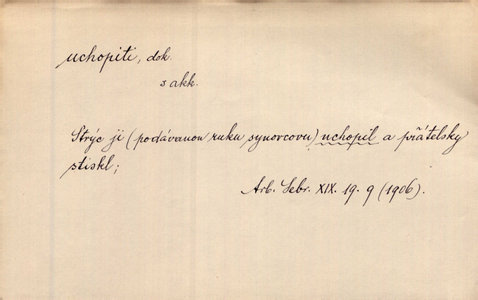 uchopiti, dok.
s akk.
Strýc ji (podávanou ruku synovcovu) uchopil a přátelsky
stiskl;
Arb. Sebr. XIX. 19. 9 (1906).